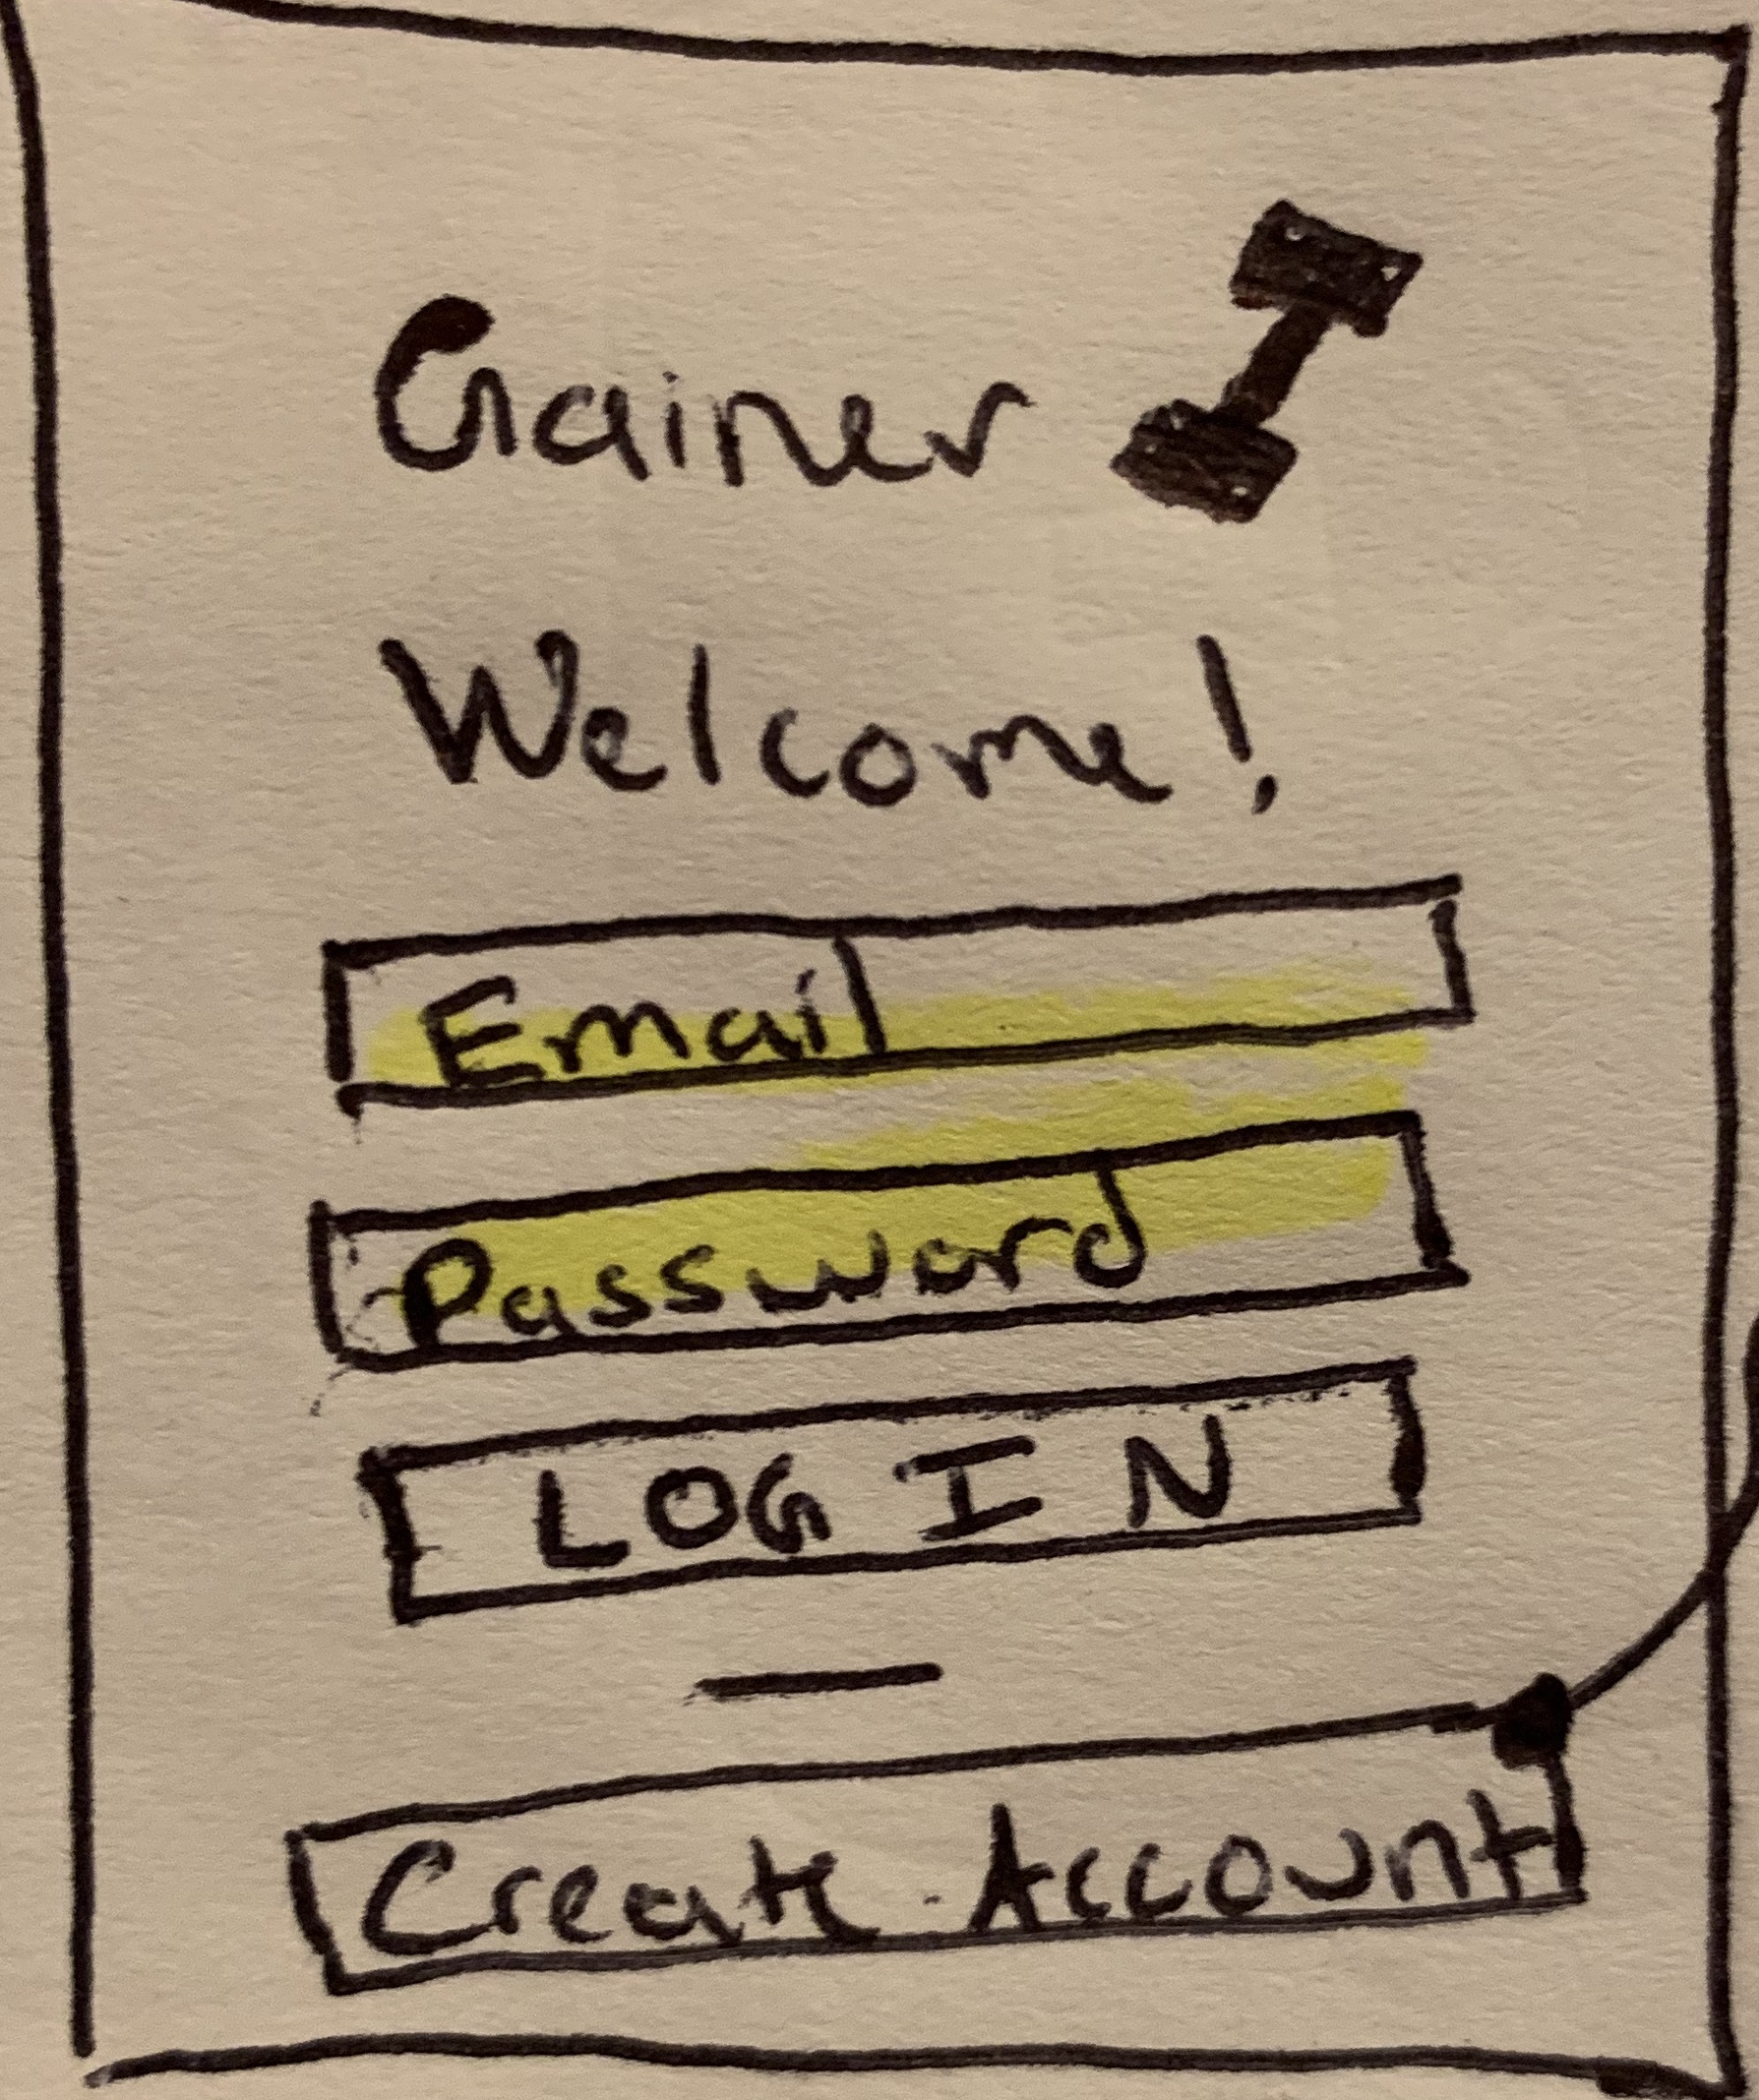 Gainer
Welcome!
Email
Password
LOG IN
Create Account